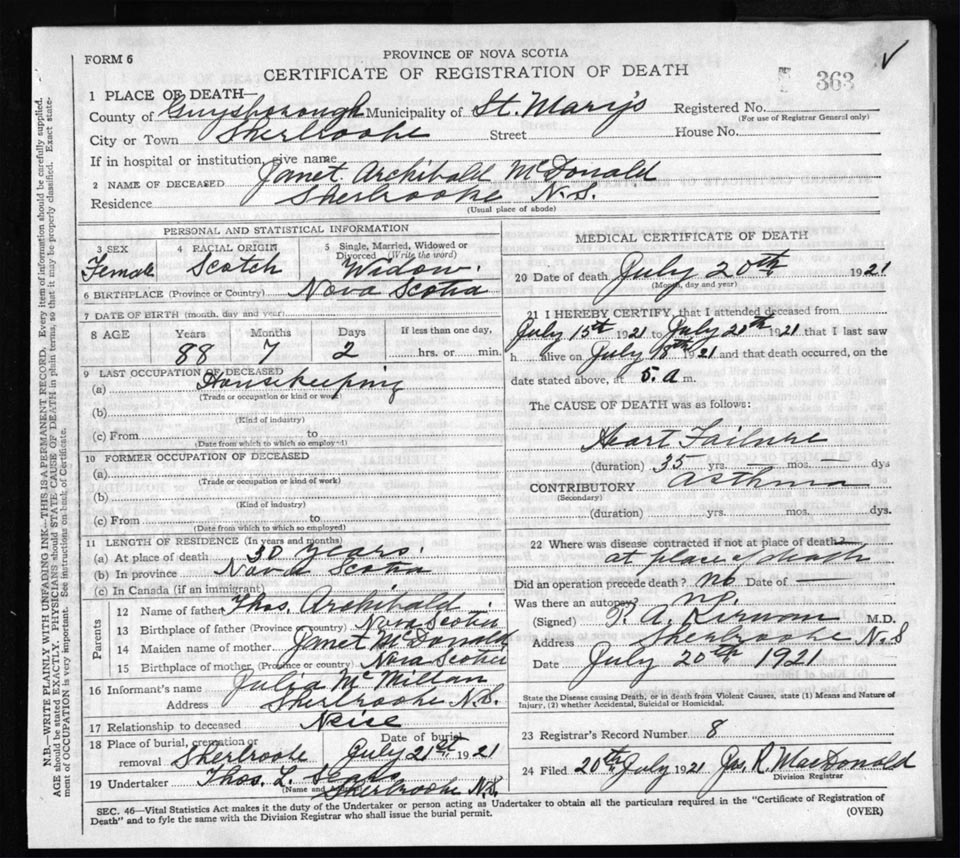 FORM 6
PROVINCE OF NOVA SCOTIA
CERTIFICATE OF REGISTRATION OF DEATH
363
1 PLACE OF DEATH—
County of Guysborough Municipality of St. Mary's Registered No.
(For use of Registrar General only)
City or Town Sherbrooke Street House No.
If in hospital or institution, give name
2 NAME OF DECEASED Janet Archibald McDonald
Residence Sherbrooke N.S.
(Usual place of abode)
PERSONAL AND STATISTICAL INFORMATION
3 SEX Female
4 RACIAL ORIGIN Scotch
5 Single, Married, Widowed or Divorced (Write the word) Widow.
6 BIRTHPLACE (Province or Country) Nova Scotia
7 DATE OF BIRTH (month, day and year)
8 AGE Years Months Days If less than one day,
88 7 2 hrs. or min.
9 LAST OCCUPATION OF DECEASED
(a) Housekeeping
(Trade or occupation or kind of work)
(b)
(Kind of industry)
(c) From to
(Date from which to which so employed)
10 FORMER OCCUPATION OF DECEASED
(a)
(Trade or occupation or kind of work)
(b)
(Kind of industry)
(c) From to
(Date from which to which so employed)
11 LENGTH OF RESIDENCE (In years and months)
(a) At place of death 30 years.
(b) In province Nova Scotia
(c) In Canada (if an immigrant)
Parents
12 Name of father Thos. Archibald.
13 Birthplace of father (Province or country) Nova Scotia
14 Maiden name of mother Janet McDonald
15 Birthplace of mother (Province or country) Nova Scotia
16 Informant's name Julia McMillan
Address Sherbrooke N.S.
17 Relationship to deceased Neice
18 Place of burial, cremation or removal Sherbrooke Date of burial July 21st 1921
19 Undertaker Thos. L.
(Name and Address) Sherbrooke N.S.
MEDICAL CERTIFICATE OF DEATH
20 Date of death July 20th 1921
(Month, day and year)
21 I HEREBY CERTIFY, that I attended deceased from
July 15th 1921 to July 20th 1921 that I last saw
h alive on July 18th 1921 and that death occurred, on the
date stated above, at 5. a m.
The CAUSE OF DEATH was as follows:
Heart Failure
(duration) 35 yrs. — mos. — dys
CONTRIBUTORY Asthma
(Secondary)
(duration) yrs. mos. dys.
22 Where was disease contracted if not at place of death?
at place of death
Did an operation precede death? no Date of —
Was there an autopsy? no
(Signed) T. A. Kirnan M.D.
Address Sherbrooke N.S
Date July 20th 1921
State the Disease causing Death, or in death from Violent Causes, state (1) Means and Nature of
Injury, (2) whether Accidental, Suicidal or Homicidal.
23 Registrar's Record Number 8
24 Filed 20th July 1921 Jas. R. MacDonald
Division Registrar
SEC. 46—Vital Statistics Act makes it the duty of the Undertaker or person acting as Undertaker to obtain all the particulars required in the "Certificate of Registration of
Death" and to fyle the same with the Division Registrar who shall issue the burial permit.
(OVER)
N.B.—WRITE PLAINLY WITH UNFADING INK—THIS IS A PERMANENT RECORD. Every item of information should be carefully supplied.
AGE should be stated EXACTLY. PHYSICIANS should STATE CAUSE OF DEATH in plain terms, so that it may be properly classified. Exact state-
ment of OCCUPATION is very important. See instructions on back of Certificate.